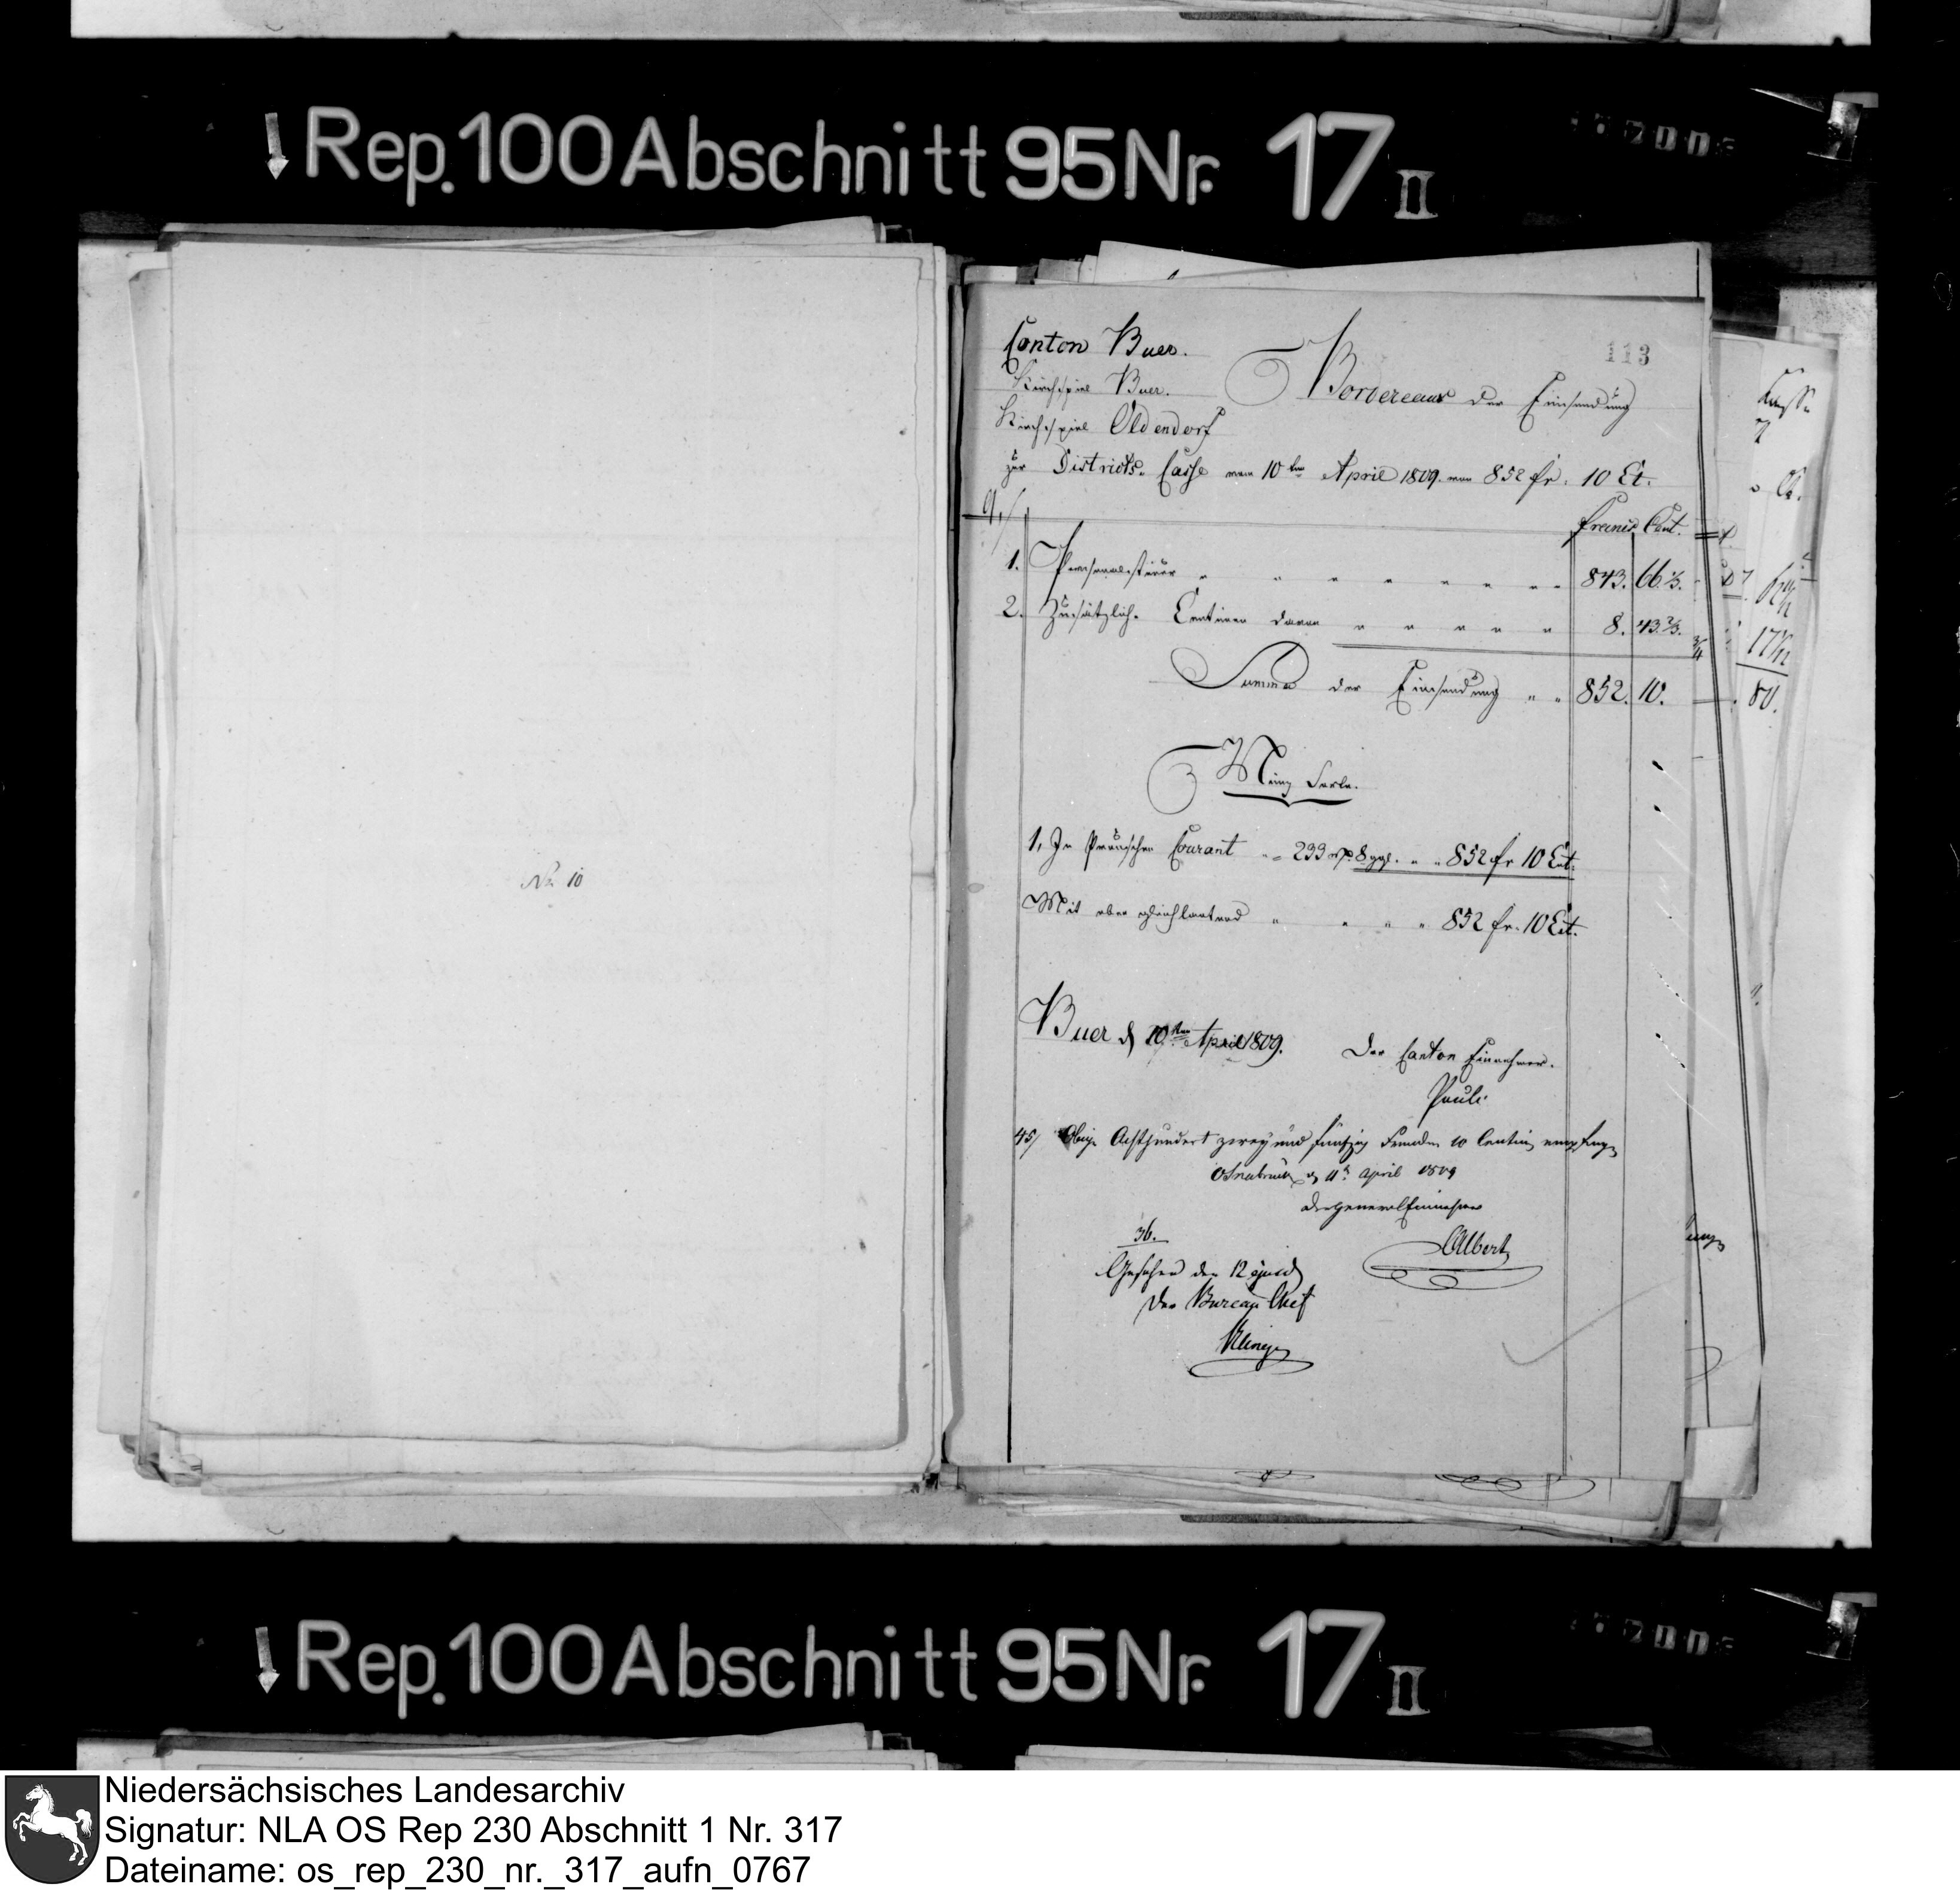 Rep. 100 Abschnitt 95 Nr. 17 II
No 10
113
Canton Buer.
Kirchspiel Buer.
Bordereau der Einsendung
Kirchspiel Oldendorf
zur Districts-Casse vom 10ten April 1809. von 852 fr. 10 Ct.
9./
Francs Cent.
1. Personalsteuer " " " " " " " " 843. 66 1/3.
2. Zusätzliche Centimen davon " " " " " 8. 43 2/3.
Summa der Einsendung " " 852. 10.
Münz Sorte.
1, In Preusschen Courant " " 233 rp. 8 ggl. " " 852 fr 10 Ct.
Mit oben gleichlautend " " " " 852 fr. 10 Ct.
Buer d 10ten April 1809.
Der Canton Einnehmer.
Pauli
45/ Obige Achthundert zwey und fünfzig Franken 10 Centim empfangen
Osnabrück d 11t April 1809
der general Einnehmer
Albert
36.
Gesehen den 12 ejusd
Der Bureau Chef
17 1/2
80.
Rep. 100 Abschnitt 95 Nr. 17 II
Niedersächsisches Landesarchiv
Signatur: NLA OS Rep 230 Abschnitt 1 Nr. 317
Dateiname: os_rep_230_nr._317_aufn_0767